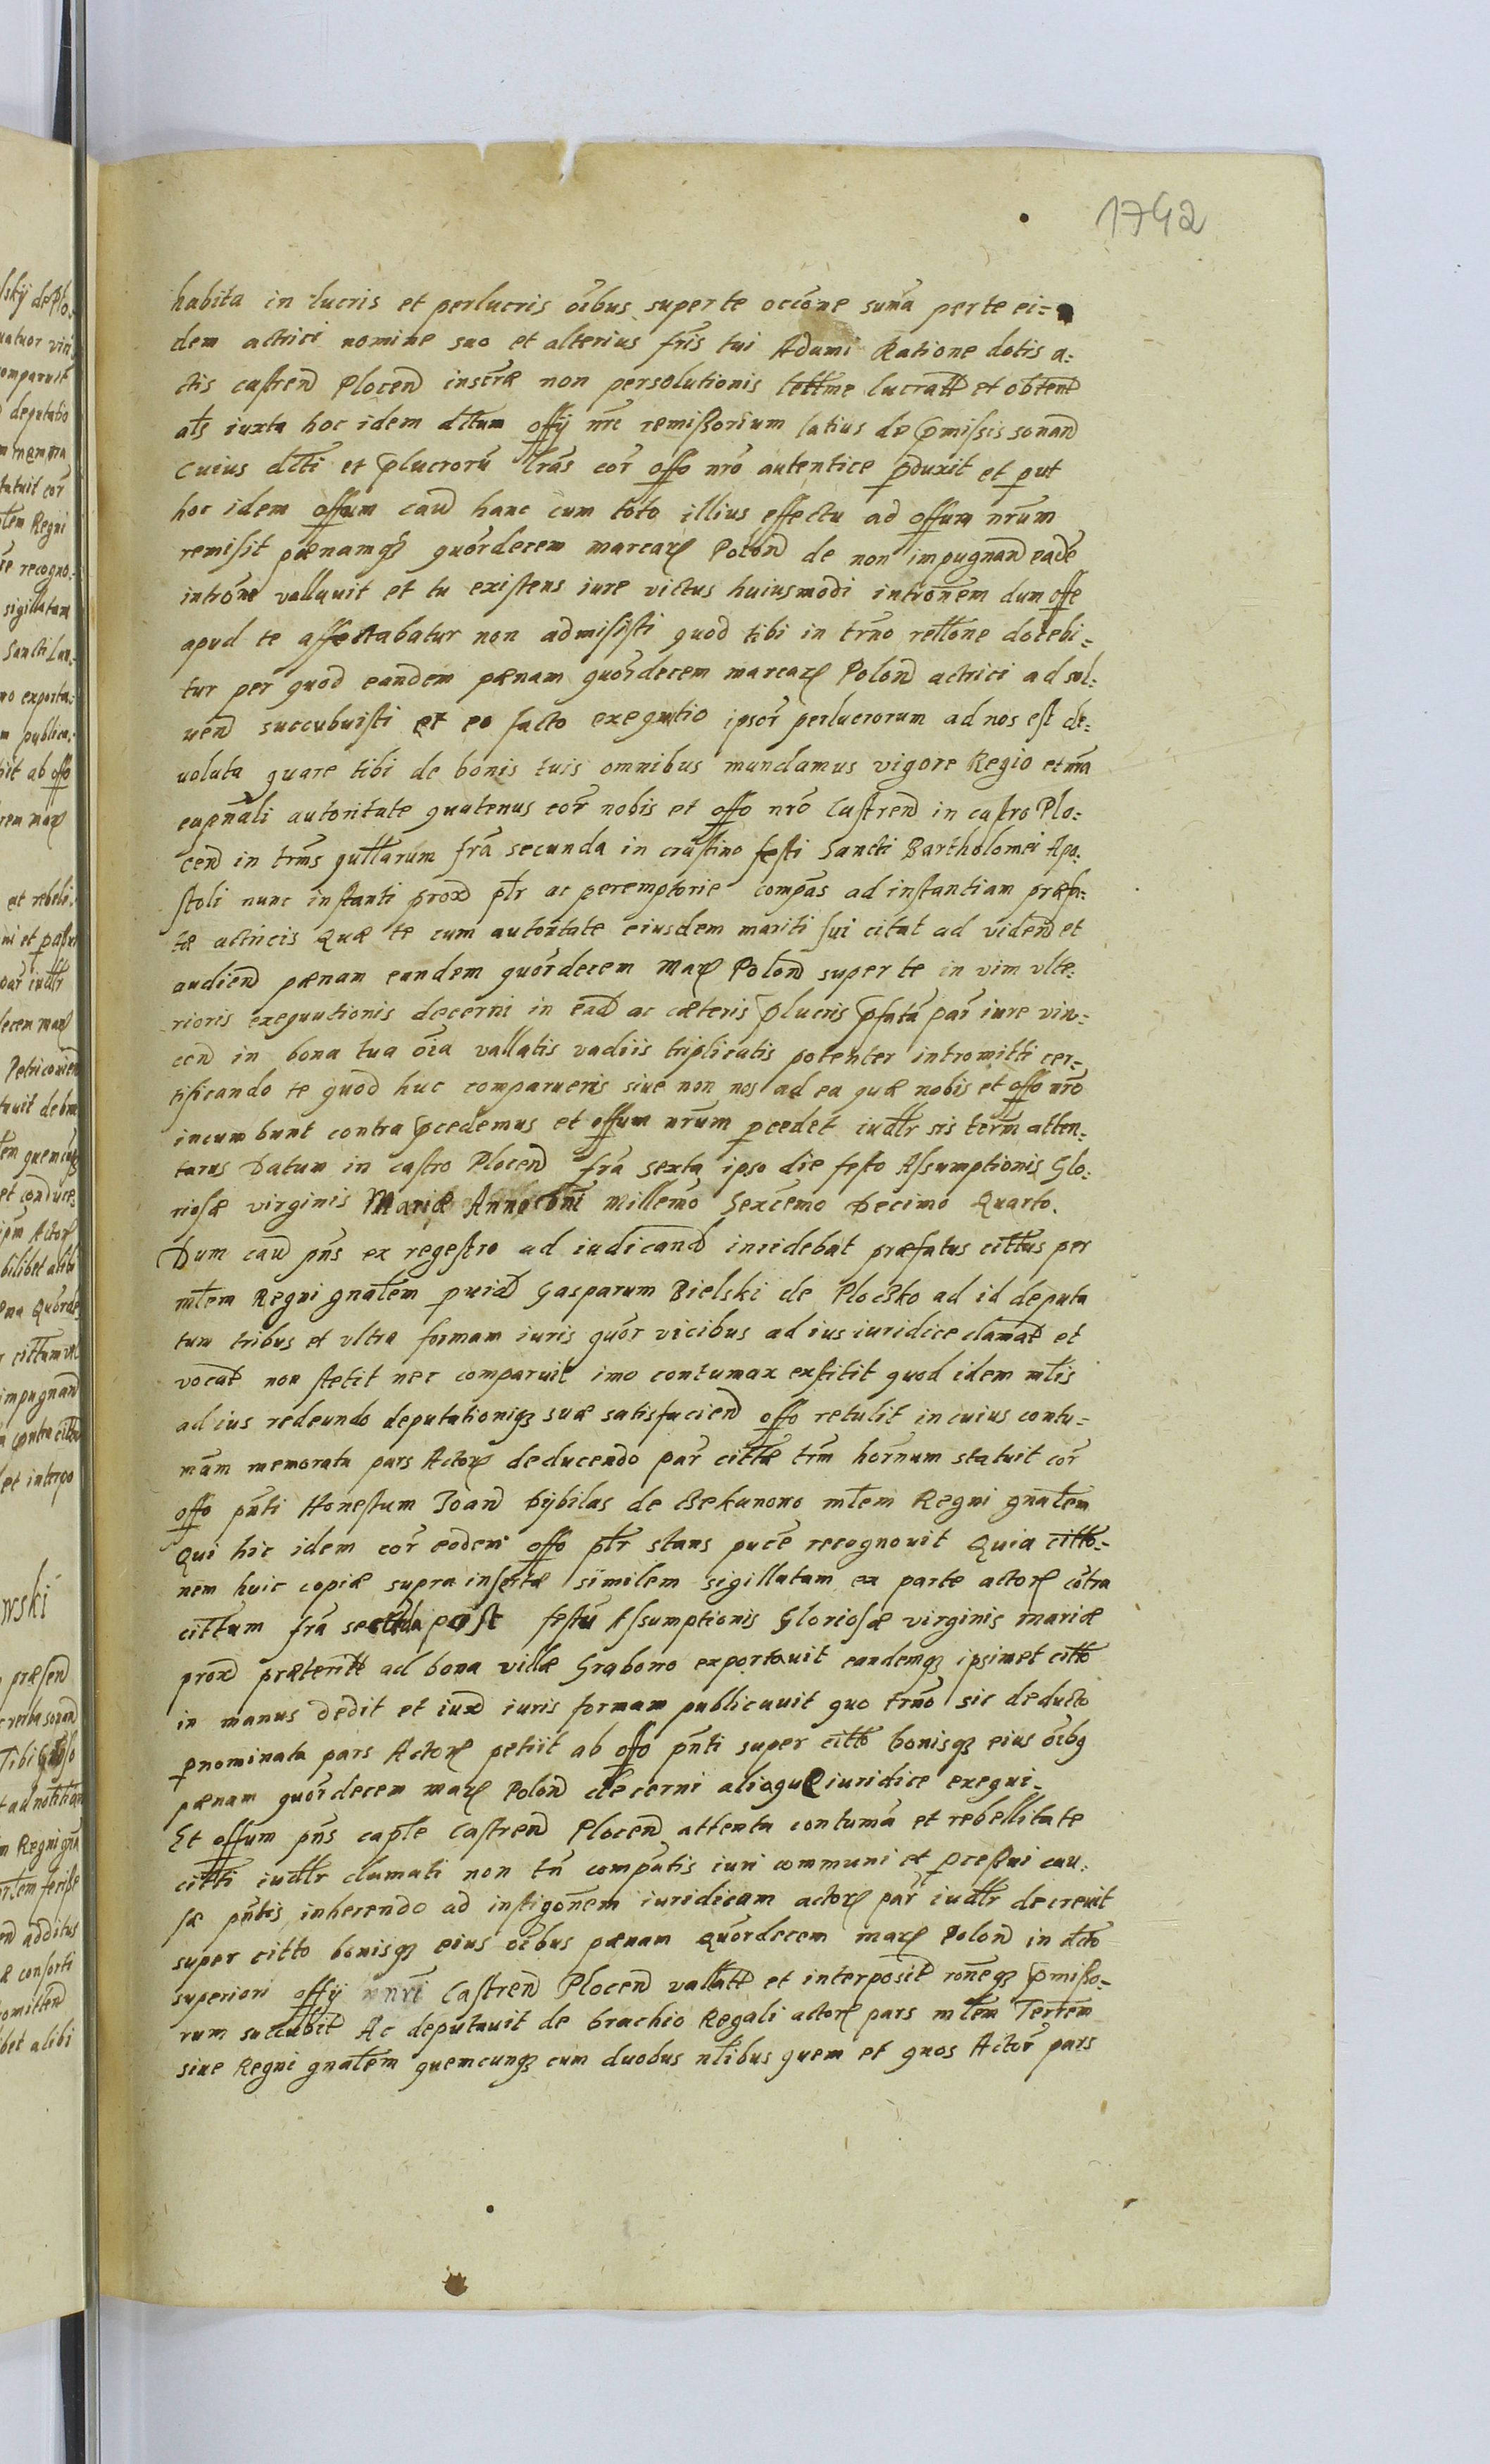 1742
habita in lucris et perlucris oībus super te occōne sum̄a per te ei=
dem actrici nomine suo et alterius fr̄is tui Adami Ratione dotis a=
ctis castren̄ Plocen̄ inscræ non persolutionis lettme lucratt et obtent
als iuxta hoc idem dttum offij nr̄i remissorium latius de p̄missis sonan̄
Cuius dtti et p̄lucrorū lr̄as cor̄ offo nr̄o autentice produxit et put
hoc idem offum cau̅ hanc cum toto illius effectu ad offum nr̄um
remisit pænamq̨ quor̄decem marcar̨ Polon̄ de non impugnan̄ eadē
intrōni vallauit et tu existens iure victus huiusmodi intronēm dum offe
apud te affectabatur non admisisti quod tibi in trn̄o rettone docebi=
tur per quod eandem pænam quor̄decem marcar̨ Polon̄ actrici ad sol=
uen̄ succubuisti et eo facto exequtio ipsor̄ perlucrorum ad nos est de=
uoluta quare tibi de bonis tuis omnibus mandamus vigore Regio et nr̄a
capn̄ali autoritate quatenus cor̄ nobis et offo nr̄o Castren̄ in castro Plo=
cen̄ in trm̄s qullarum fr̄a secunda in crastino festi Sancti Bartholomei Apo=
stoli nunc instanti prox̄ ptr̄ ac peremptorie compas ad instantiam præfa=
tæ actricis Quæ te cum autoritate eiusdem mariti sui citat ad viden̄ et
audien̄ pænam eandem quor̄decem Mar̨ Polon̄ super te in vim vlte=
rioris exequutionis decerni in ead̄ ac cæteris p̄lucris p̄fatā par̄ iure vin=
cen̄ in bona tua oīa vallatis vadiis triplicatis potenter intromitti cer=
tificando te quod huc comparueris siue non nos ad ea quæ nobis et offo nr̄o
incumbunt contra p̄cedemus et offum nr̄um p̄cedet iudtr sis term̄ atten=
tarus Datum in castro Plocen̄ fr̄a Sexta ipso die festo Assumptionis Glo=
riosæ virginis Mariæ Anno Dn̄i Millem̄o Sexcēmo Decimo Quarto.
Dum cau̅ pn̄s ex regestro ad iudican̄ incidebat præfatus cittus per
mtem Regni gnatem puid̄ Gasparum Bielski de Plocsko ad id deputa
tum tribus et vltra formam iuris quor̄ vicibus ad ius iuridice clamat̄ et
vocat̄ non stetit nec comparuit imo contumax exstitit quod idem mtis
ad ius redeundo deputationiq̨ suæ satisfacien̄ offo retulit in cuius contu=
mām memorata pars Actor̨ deducendo par̄ cittæ trm̄ hor̄num statuit cor̄
offo pn̄ti Honestum Joan̄ Dybilas de Bekanono mtem Regni gnatem
Qui hic idem cor̄ eodem offo ptr̄ stans pucē recognouit Quia citto=
nem huic copiæ supra insertæ similem sigillatam ex parte actor̨ cōtra
cittum fr̄a sectda post festū Assumptionis Gloriosæ virginis mariæ
prox̄ præteritt ad bona villæ Grabowo exportauit eandemq̨ ipsimet citto
in manus dedit et iux̄ iuris formam publicauit quo trn̄o sic deducto
p̄nominata pars Actor̨ petiit ab offo pn̄ti super citto bonisq̨ eius oībq̨
pænam quor̄decem mar̨ Polon̄ decerni aliaquæ iuridice exequi=
Et offum pn̄s caple Castren̄ Plocen̄ attenta contumā et rebellitate
citti iudtr clamati non tn̄ comp̄utis iuri communi et p̄cessui cau=
sæ pn̄tis inherendo ad instigōnem iuridicam actor̨ par̄ iudtr decreuit
super citto bonisq̨ eius oībus pænam Quor̄decem mar̨ Polon̄ in dtto
superiori offij nnri Castren̄ Plocen̄ vallatt et interposit̄ rōneq̨ p̄misso=
rum succubit̄ Ac deputauit de brachio Regali actor̨ pars mtem Terrem
siue Regni gnatem quemcunq̨ cum duobus ntibus quem et quos Actor̄ pars